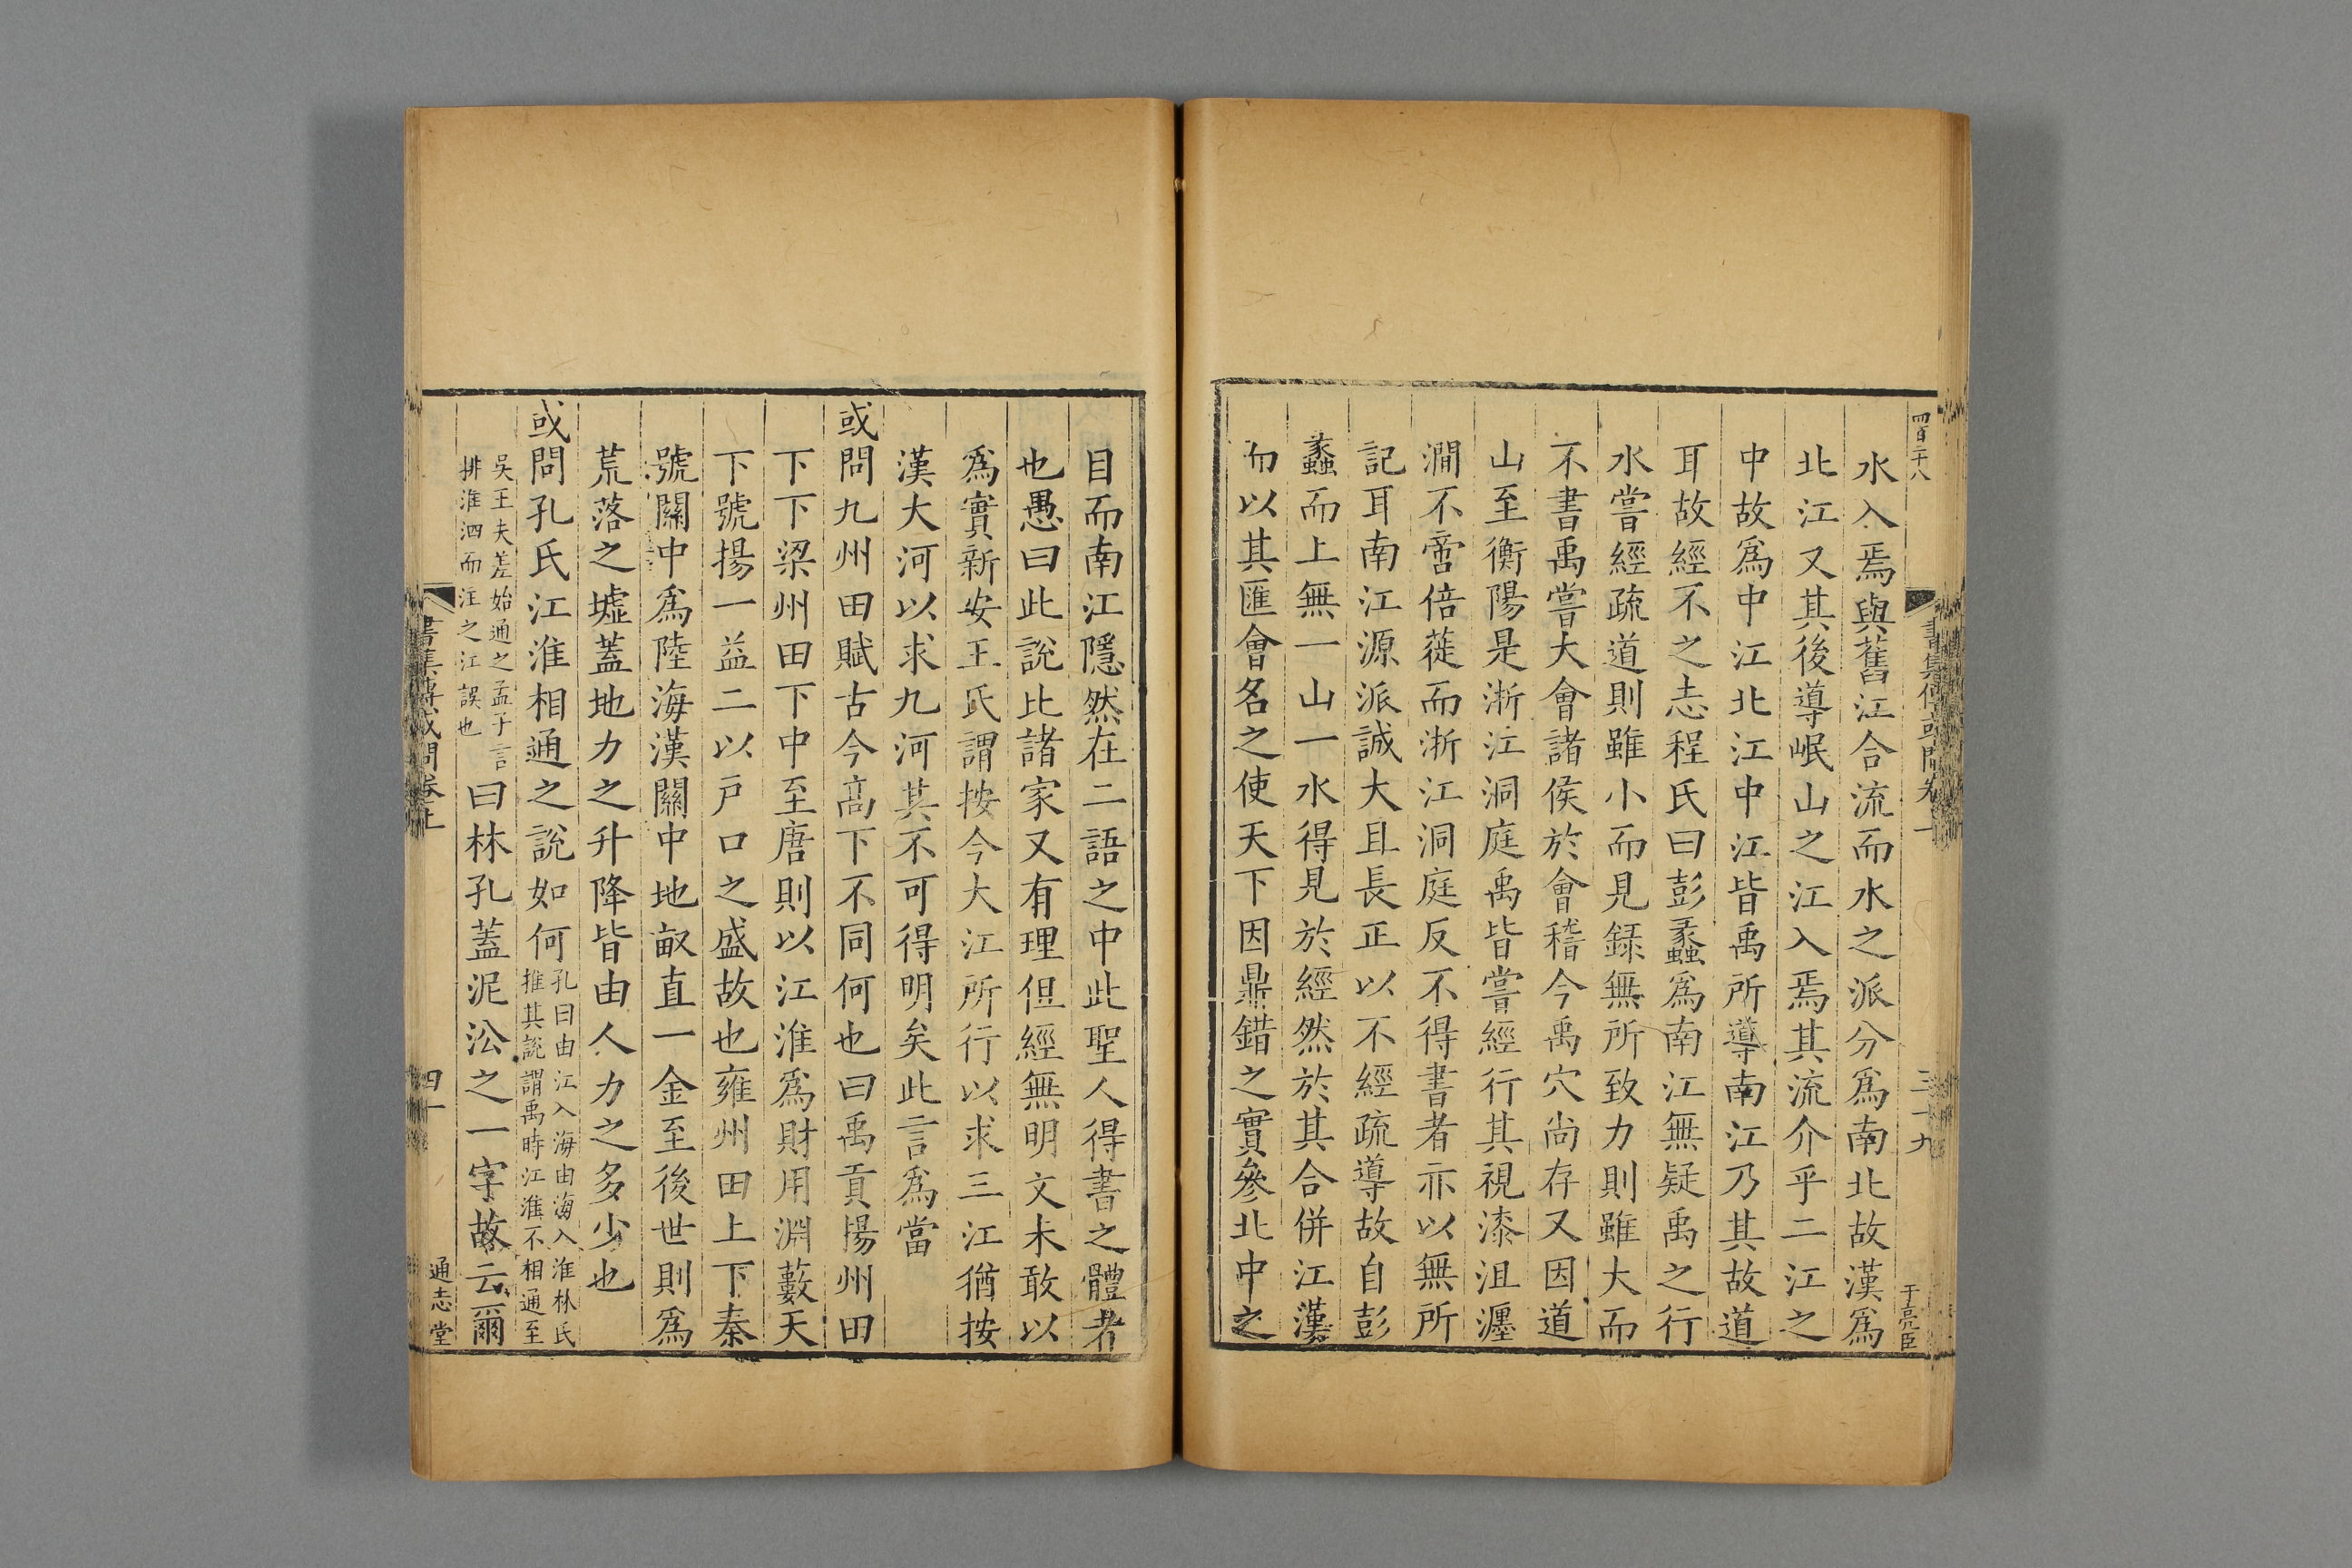 四百二十八
三十九
于亮臣
水入焉與舊江合流而水之派分爲南北故漢爲
北江又其後導岷山之江入焉其流介乎二江之
中故爲中江北江中江皆禹所導南江乃其故道
耳故經不之志程氏曰彭蠡爲南江無疑禹之行
水嘗經疏道則雖小而見録無所致力則雖大而
不書禹嘗大會諸侯於會稽今禹穴尚存又因道
山至衡陽是淅江洞庭禹皆嘗經行其視漆沮瀍
澗不啻倍蓰而淅江洞庭反不得書者亦以無所
記耳南江源派誠大且長正以不經疏導故自彭
蠡而上無一山一水得見於經然於其合併江漢
而以其匯會名之使天下因鼎錯之實參北中之
目而南江隱然在二語之中此聖人得書之體者
也愚曰此說比諸家又有理但經無明文未敢以
爲實新安王氏謂按今大江所行以求三江猶按
漢大河以求九河其不可得明矣此言爲當
或問九州田賦古今高下不同何也曰禹貢揚州田
下下梁州田下中至唐則以江淮爲財用淵藪天
下號揚一益二以戸口之盛故也雍州田上下秦
號關中爲陸海漢關中地畝直一金至後世則爲
荒落之墟蓋地力之升降皆由人力之多少也
或問孔氏江淮相通之說如何孔曰由江入海由海入淮林氏
推其說謂禹時江淮不相通至
吳王夫差始通之孟子言
排淮泗而注之江誤也曰林孔蓋泥㳂之一字故云爾
書集傳或問卷上
四十
通志堂